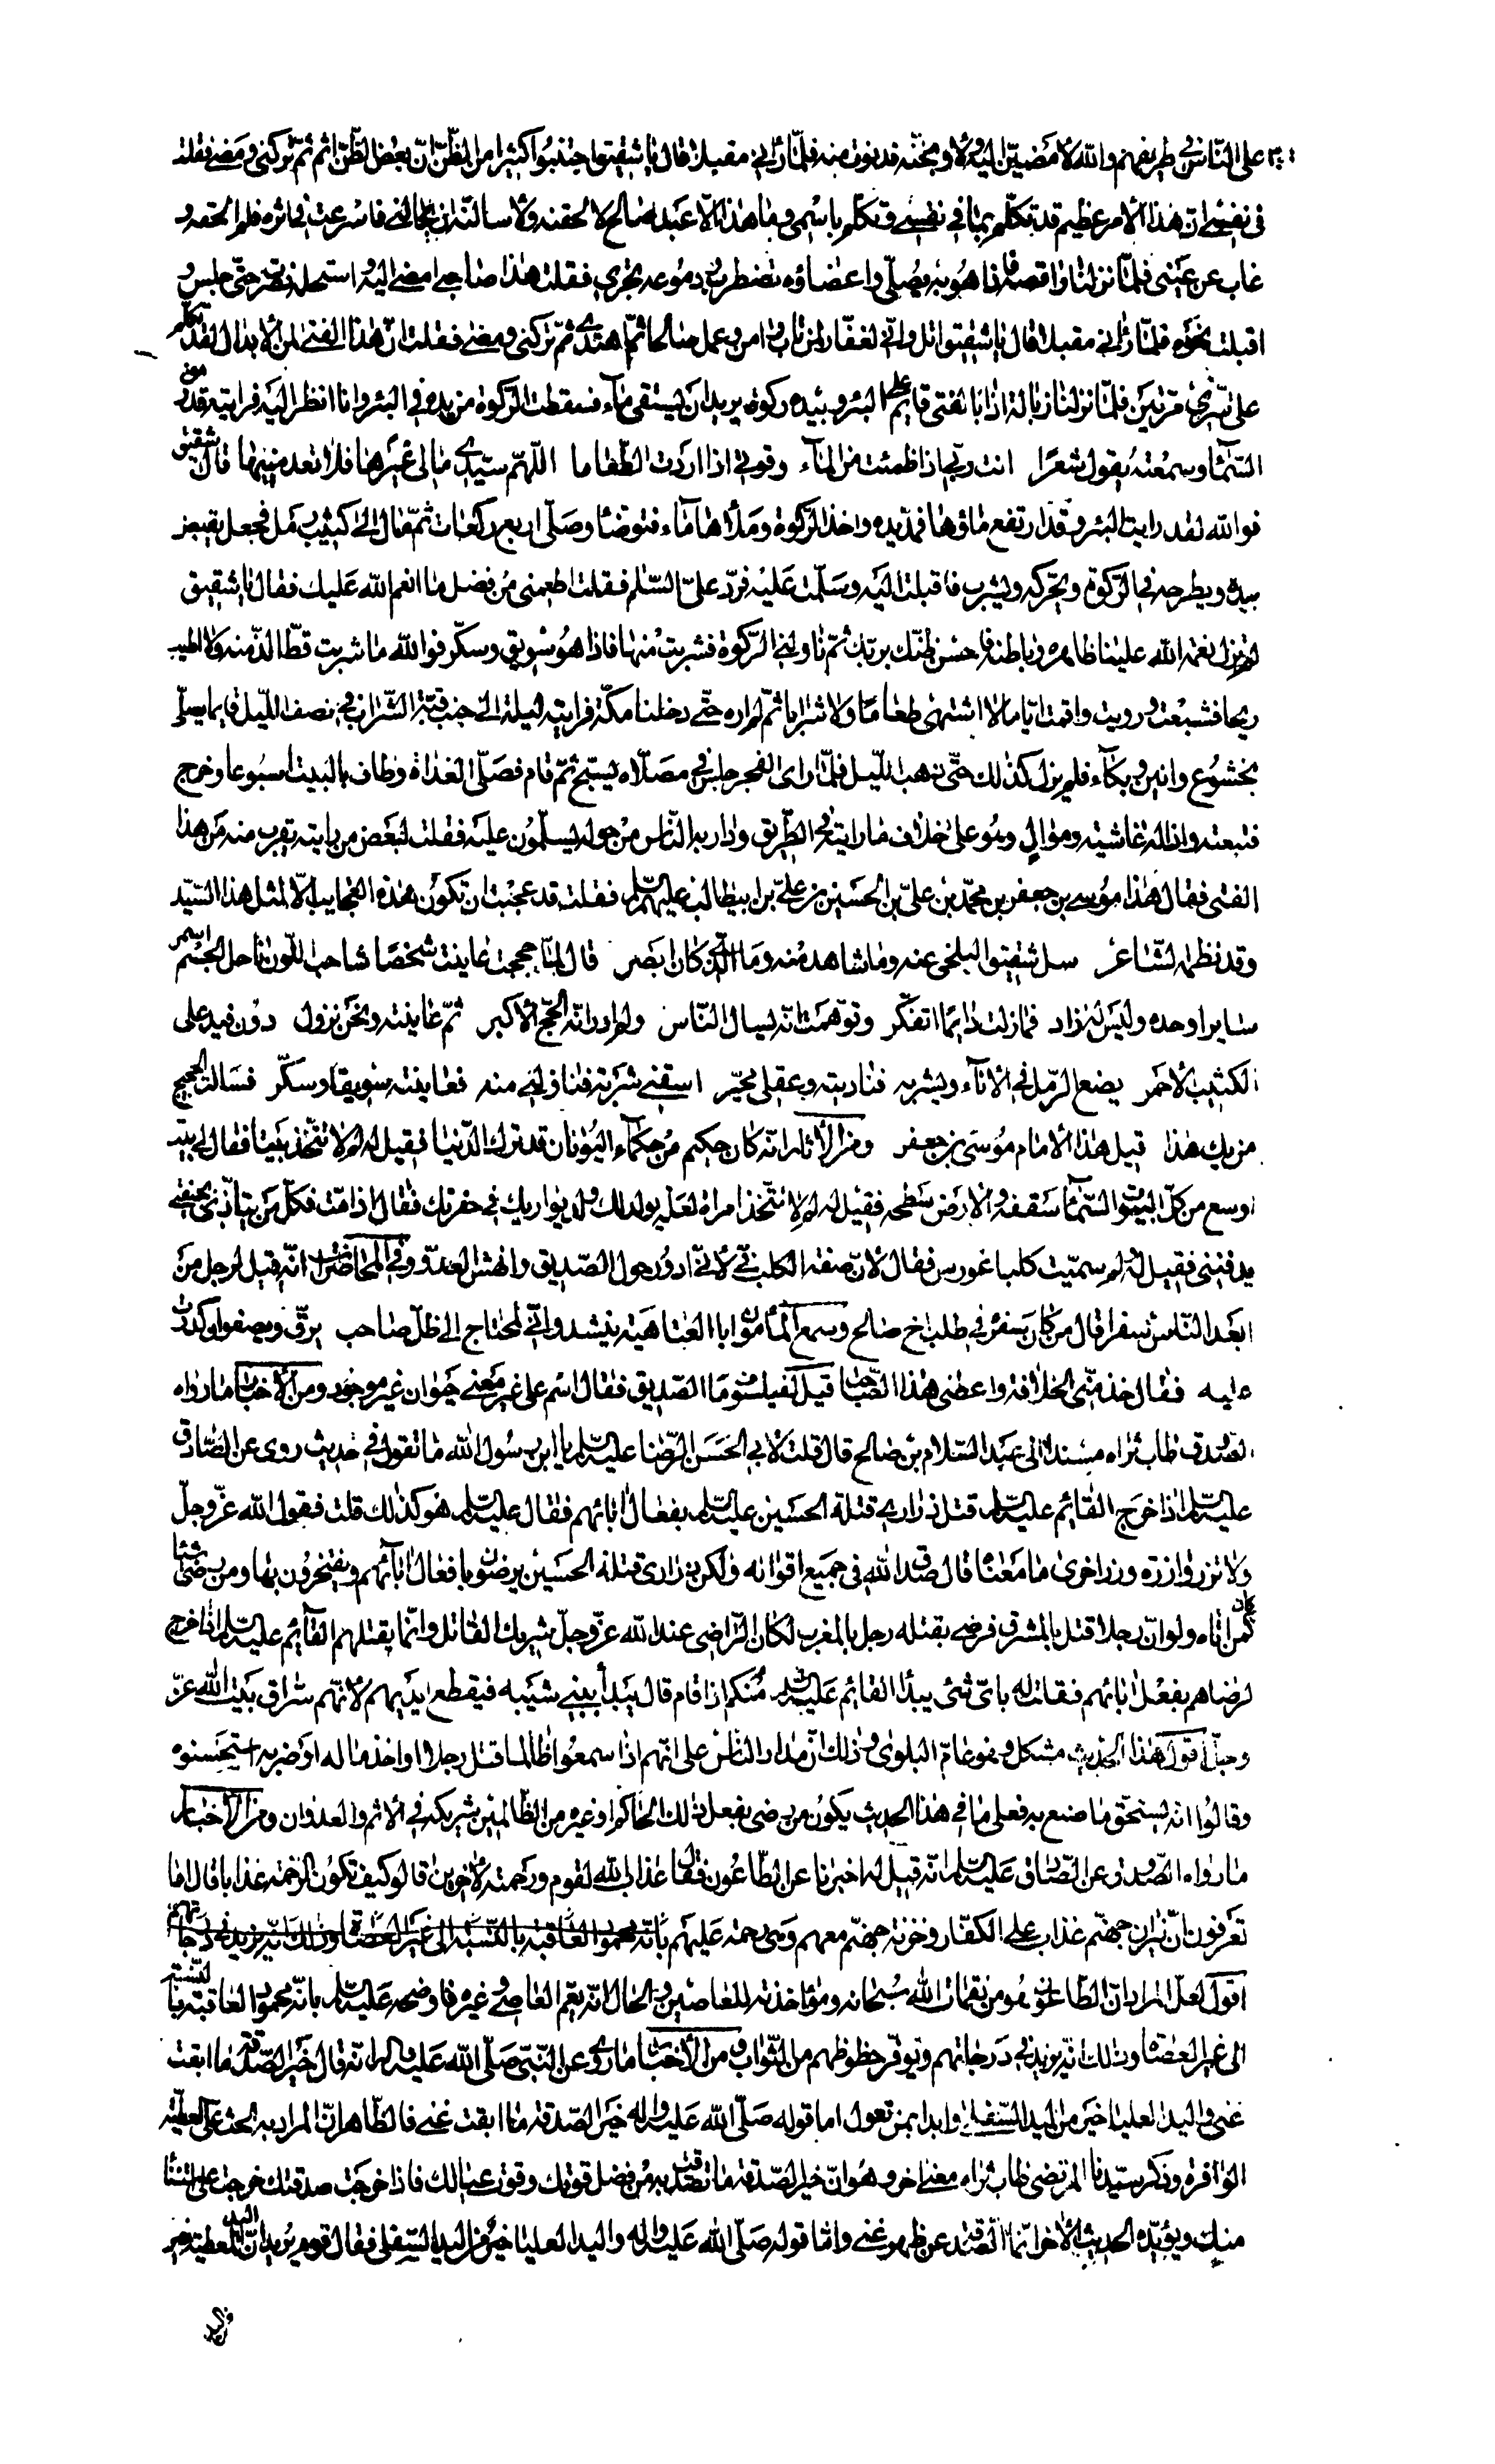 على الناس في طريقهم والله لامضين اليه ولاوبخنه فدنوت منه فلما رانى مقبلا قال يا شقيق اجتنبوا كثيرا من الظن ان بعض الظن اثم ثم تركنى ومضى فقلت
فى نفسى ان هذا الامر عظيم قد تكلم بما في نفسى وتكلم باسمى وما هذا الا عبد صالح لالحقنه ولاسالنه ان يحاللنى فاسرعت في اثره فلم الحقه و
غاب عن عينى فلما نزلنا واقصة فاذا هو به يصلى واعضاؤه تضطرب ودموعه تجرى فقلت هذا صاحبى امضى اليه واستحله فصبرت حتى جلس و
اقبلت نحوه فلما رانى مقبلا قال يا شقيق اتل وانى لغفار لمن تاب وامن وعمل صالحا ثم اهتدى ثم تركنى ومضى فقلت ان هذا الفتى لمن الابدال لقد تكلم
على سرى مرتين فلما نزلنا زبالة اذا بالفتى قائم على البئر وبيده ركوة يريد ان يستقى ماء فسقطت الركوة من يده في البئر وانا انظر اليه فرايته قد رمق
السماء وسمعته يقول شعرا انت ربي اذا ظمئت من الماء وقوتى اذا اردت الطعاما اللهم سيدى ما لى غيرها فلا تعدمنيها قال شقيق
فوالله لقد رايت البئر وقد ارتفع ماؤها فمد يده واخذ الركوة وملأها ماء فتوضا وصلى اربع ركعات ثم مال الى كثيب رمل فجعل يقبض
بيده ويطرحه في الركوة ويحركه ويشرب فاقبلت اليه وسلمت عليه فرد على السلام فقلت اطعمنى من فضل ما انعم الله عليك فقال يا شقيق
لم تزل نعمة الله علينا ظاهرة وباطنة فاحسن ظنك بربك ثم ناولنى الركوة فشربت منها فاذا هو سويق وسكر فوالله ما شربت قط الذ منه ولا اطيب
ريحا فشبعت ورويت واقمت اياما لا اشتهى طعاما ولا شرابا ثم لم اره حتى دخلنا مكة فرايته ليلة الى جنب قبة الشراب في نصف الليل قائما يصلى
بخشوع وانين وبكاء فلم يزل كذلك حتى ذهب الليل فلما راى الفجر جلس في مصلاه يسبح ثم قام فصلى الغداة وطاف بالبيت اسبوعا وخرج
فتبعته واذا له غاشية وموال وهو على خلاف ما رايته في الطريق ودار به الناس من حوله يسلمون عليه فقلت لبعض من رايته يقرب منه من هذا
الفتى فقال هذا موسى بن جعفر بن محمد بن على بن الحسين بن على بن ابيطالب عليهم السلام فقلت قد عجبت ان تكون هذه العجايب الا لمثل هذا السيد
وقد نظم الشاعر سل شقيق البلخى عنه وما شاهد منه وما الذى كان ابصر قال لما حججت عاينت شخصا شاحب اللون ناحل الجسم اسمر
سايرا وحده وليس له زاد فما زلت دائما اتفكر وتوهمت انه يسال الناس ولم ادر انه الحج الاكبر ثم عاينته ونحن نزول دون فيد على
الكثيب الاحمر يضع الرمل في الاناء ويشربه فناديته وعقلى محير اسقنى شربة فناولنى منه فعاينته سويقا وسكر فسالت الحجيج
من يك هذا قيل هذا الامام موسى بن جعفر ومن الاثار انه كان حكيم من حكماء اليونان قد ترك الدنيا فقيل له لم لا تتخذ بيتا فقال لى بيت
اوسع من كل البيوت السماء سقفه والارض سطحه فقيل له لم لا تتخذ امراة لعله يولد لك ولد يواريك في حفرتك فقال اذا مت فكل من يتاذى بجيفتى
يدفننى فقيل له لم سميت كلبا غورس فقال لان صفة الكلب فى لانى ادور حول الصديق وانهش العدو وفي المحاضرات انه قيل لرجل من
ابعد الناس سفرا قال من كان سفره في طلب اخ صالح وسمع المأمون ابا العتاهية ينشد وانى لمحتاج الى ظل صاحب يرق ويصفو ان كدرت
عليه فقال خذ منى الخلافة واعطنى هذا الصاحب قيل لفيلسوف ما الصديق فقال اسم على غير معنى حيوان غير موجود ومن الاخبار ما رواه
الصدوق طاب ثراه مسندا الى عبد السلام بن صالح قال قلت لابي الحسن الرضا عليه السلم يا ابن رسول الله ما تقول في حديث روى عن الصادق
عليه السلم اذا خرج القائم عليه السلم قتل ذرارى قتلة الحسين عليه السلم بفعال ابائهم فقال عليه السلم هو كذلك قلت فقول الله عز وجل
ولا تزر وازرة وزر اخرى ما معناه قال صدق الله فى جميع اقواله ولكن ذرارى قتلة الحسين يرضون بافعال ابائهم ويفتخرون بها ومن رضى شيئا
كان كمن اتاه ولو ان رجلا قتل بالمشرق فرضى بقتله رجل بالمغرب لكان الراضى عند الله عز وجل شريك القاتل وانما يقتلهم القائم عليه السلم اذا خرج
لرضاهم بفعل ابائهم فقلت له باى شئ يبدأ القائم عليه السلم منكم اذا قام قال يبدأ ببنى شيبه فيقطع ايديهم لانهم سراق بيت الله عز
وجل اقول هذا الحديث مشكل وهو عام البلوى وذلك ان مدار الناس على انهم اذا سمعوا ظالما قتل رجلا او اخذ ماله او ضربه استحسنوه
وقالوا انه يستحق ما صنع به فعلى ما في هذا الحديث يكون من رضى بفعل ذلك الحاكم او غيره من الظالمين شريكه في الاثم والعدوان ومن الاخبار
ما رواه الصدوق عن الصادق عليه السلم انه قيل له اخبرنا عن الطاعون فقال عذاب الله لقوم ورحمة لاخرين قالوا كيف تكون الرحمة عذابا قال اما
تعرفون ان نيران جهنم عذاب على الكفار وخزنة جهنم معهم وهى رحمة عليهم بانه محمود العاقبة بالنسبة الى غير العصاة وذلك انه يزيد في درجاتهم
اقول لعل المراد بان الطاعون هو من نقمات الله سبحانه ومؤاخذته للعاصين والحال انه يعم العاصى وغيره فاوضحه عليه السلم بانه محمود العاقبة بالنسبة
الى غير العصاة وذلك انه يزيد في درجاتهم وتوفر حظوظهم من الثواب ومن الاخبار ما روى عن النبى صلى الله عليه واله انه قال خير الصدقة ما ابقت
غنى واليد العليا خير من اليد السفلى وابدا بمن تعول اما قوله صلى الله عليه واله خير الصدقة ما ابقت غنى فالظاهر ان المراد به الحث على العطية
الوافرة وذكر سيدنا المرتضى طاب ثراه معنى اخر وهو ان خير الصدقة ما تصدقت به من فضل قوتك وقوت عيالك فاذا خرجت صدقتك خرجت على استغناء
منك ويؤيده الحديث الاخر انما الصدقة عن ظهر غنى واما قوله صلى الله عليه واله واليد العليا خير من اليد السفلى فقال قوم يريد ان اليد المعطية خير